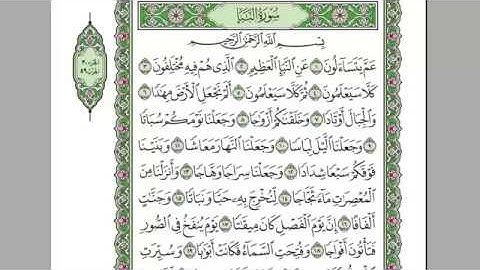 سُورَةُ النَّبَإِ
الجزء ٣٠
الحزب ٥٩
بِسْمِ اللَّهِ الرَّحْمَٰنِ الرَّحِيمِ
عَمَّ يَتَسَآءَلُونَ ١ عَنِ ٱلنَّبَإِ ٱلْعَظِيمِ ٢ ٱلَّذِى هُمْ فِيهِ مُخْتَلِفُونَ ٣
كَلَّا سَيَعْلَمُونَ ٤ ثُمَّ كَلَّا سَيَعْلَمُونَ ٥ أَلَمْ نَجْعَلِ ٱلْأَرْضَ مِهَٰدًا ٦
وَٱلْجِبَالَ أَوْتَادًا ٧ وَخَلَقْنَٰكُمْ أَزْوَٰجًا ٨ وَجَعَلْنَا نَوْمَكُمْ سُبَاتًا
٩ وَجَعَلْنَا ٱلَّيْلَ لِبَاسًا ١٠ وَجَعَلْنَا ٱلنَّهَارَ مَعَاشًا ١١ وَبَنَيْنَا
فَوْقَكُمْ سَبْعًا شِدَادًا ١٢ وَجَعَلْنَا سِرَاجًا وَهَّاجًا ١٣ وَأَنزَلْنَا مِنَ
ٱلْمُعْصِرَٰتِ مَآءً ثَجَّاجًا ١٤ لِّنُخْرِجَ بِهِۦ حَبًّا وَنَبَاتًا ١٥ وَجَنَّٰتٍ
أَلْفَافًا ١٦ إِنَّ يَوْمَ ٱلْفَصْلِ كَانَ مِيقَٰتًا ١٧ يَوْمَ يُنفَخُ فِى ٱلصُّورِ
فَتَأْتُونَ أَفْوَاجًا ١٨ وَفُتِحَتِ ٱلسَّمَآءُ فَكَانَتْ أَبْوَٰبًا ١٩ وَسُيِّرَتِ